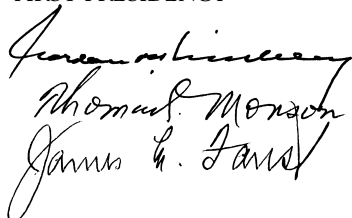 FIRST PRESIDENCY
Gordon B. Hinckley
Thomas S. Monson
James E. Faust